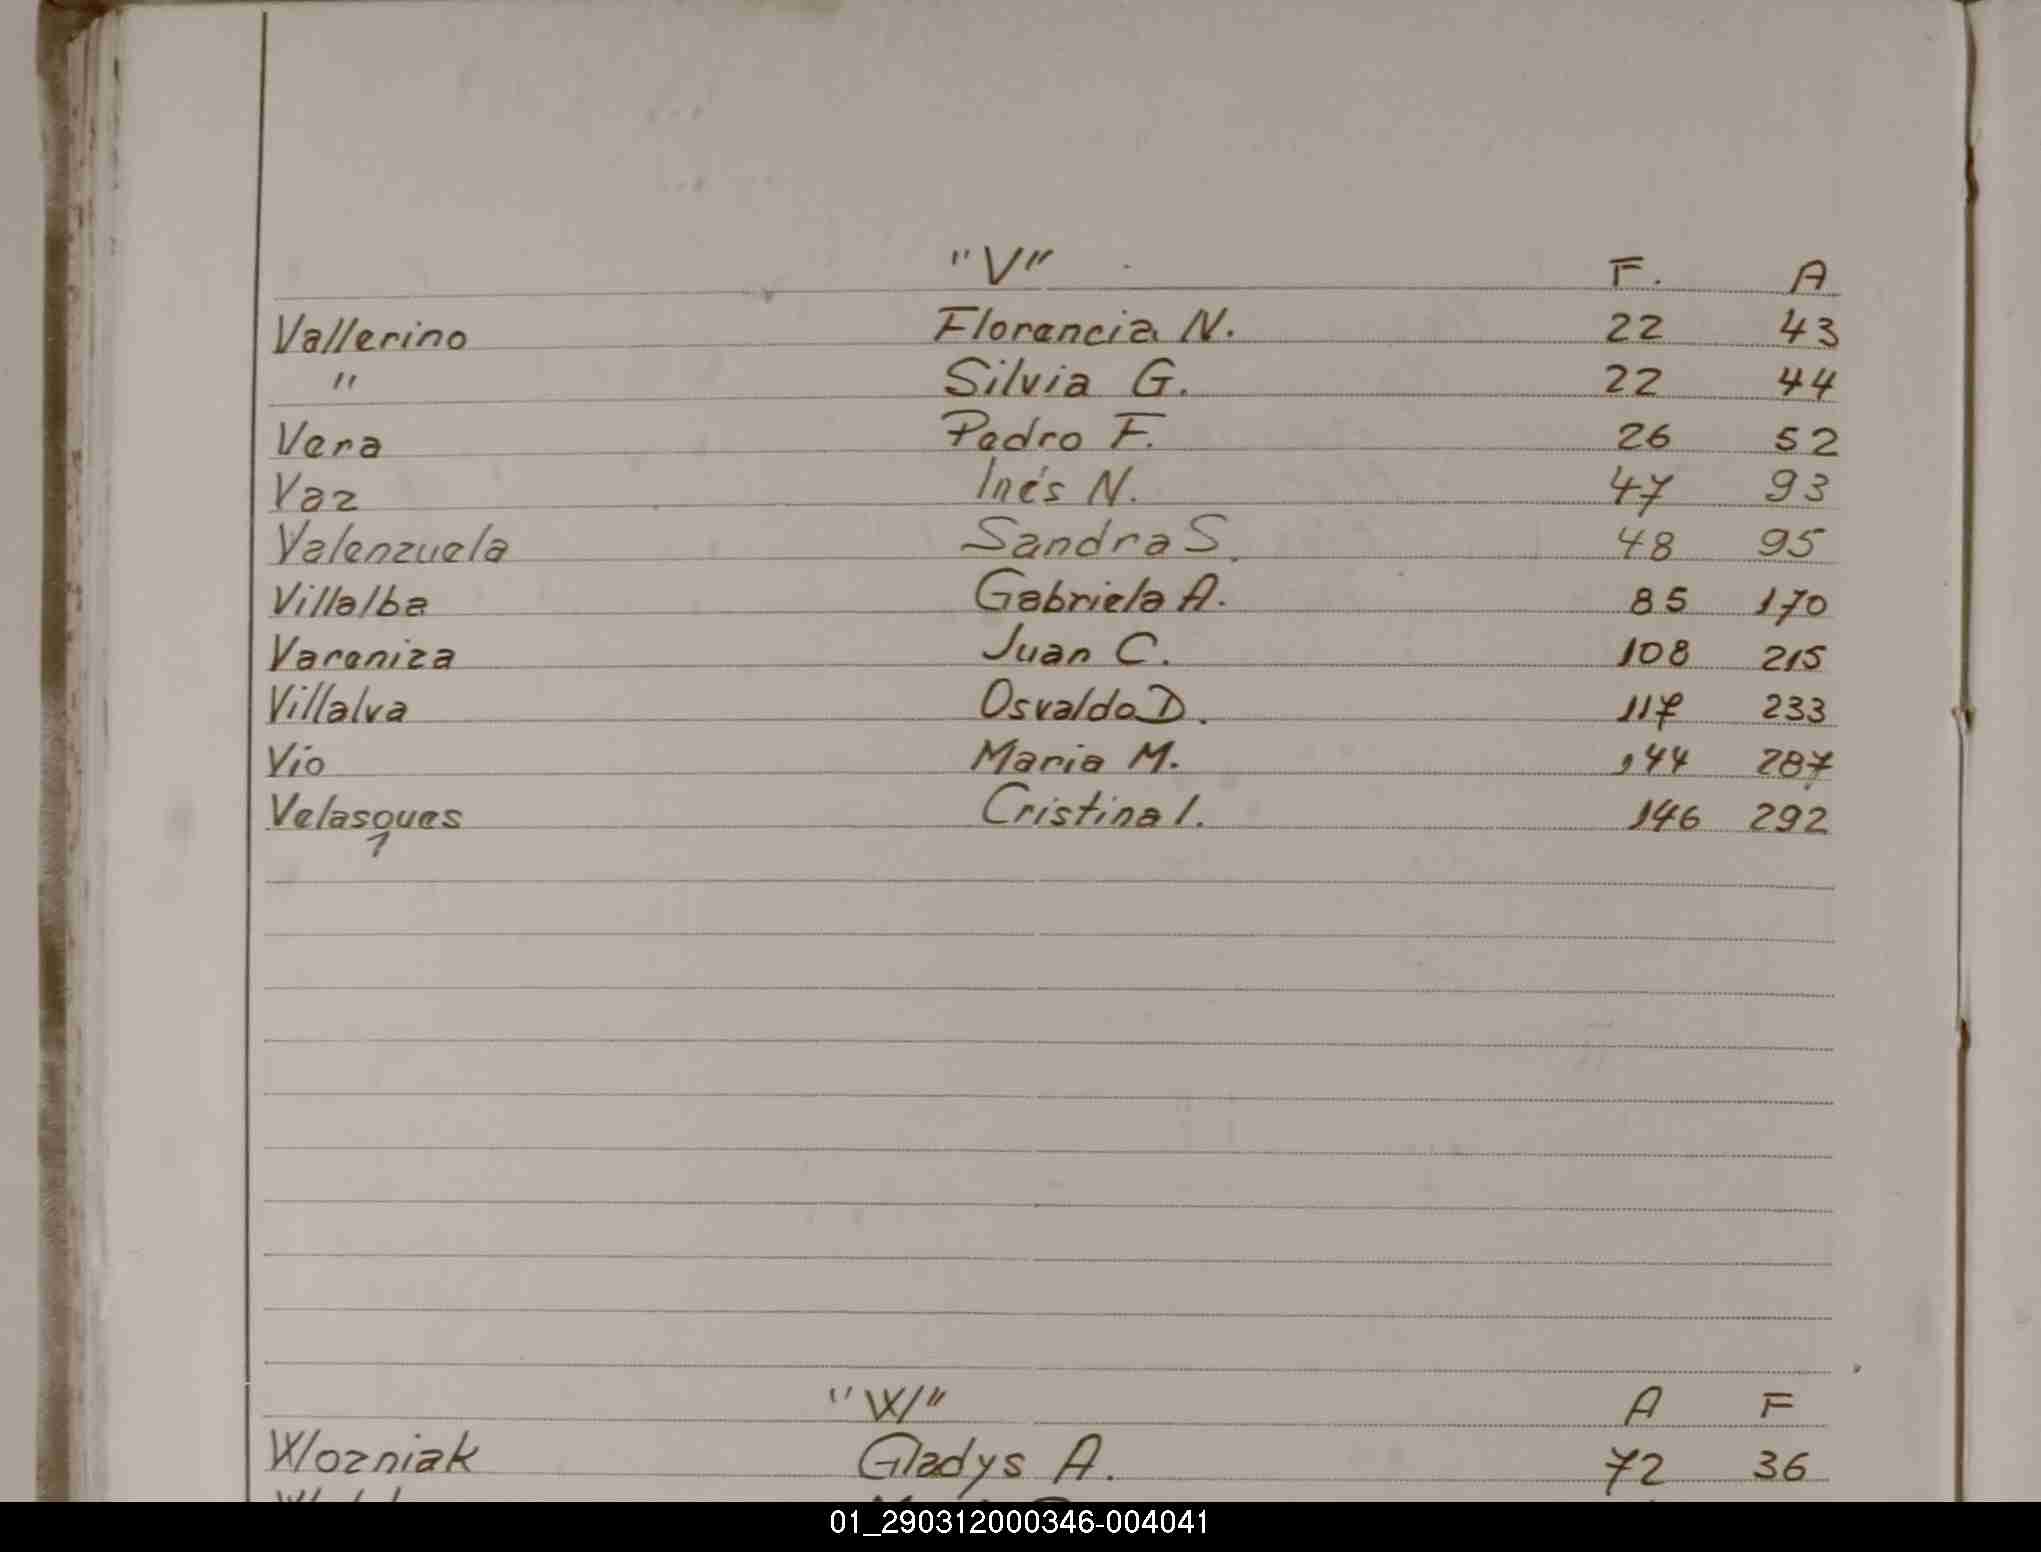 "V" F. A
Vallerino Florencia N. 22 43
" Silvia G. 22 44
Vera Pedro F. 26 52
Vaz Inés N. 47 93
Valenzuela Sandra S. 48 95
Villalba Gabriela A. 85 170
Vareniza Juan C. 108 215
Villalva Osvaldo D. 117 233
Vio Maria M. 144 287
Velasques Cristina I. 146 292
"W" A F
Wozniak Gladys A. 72 36
01_290312000346-004041